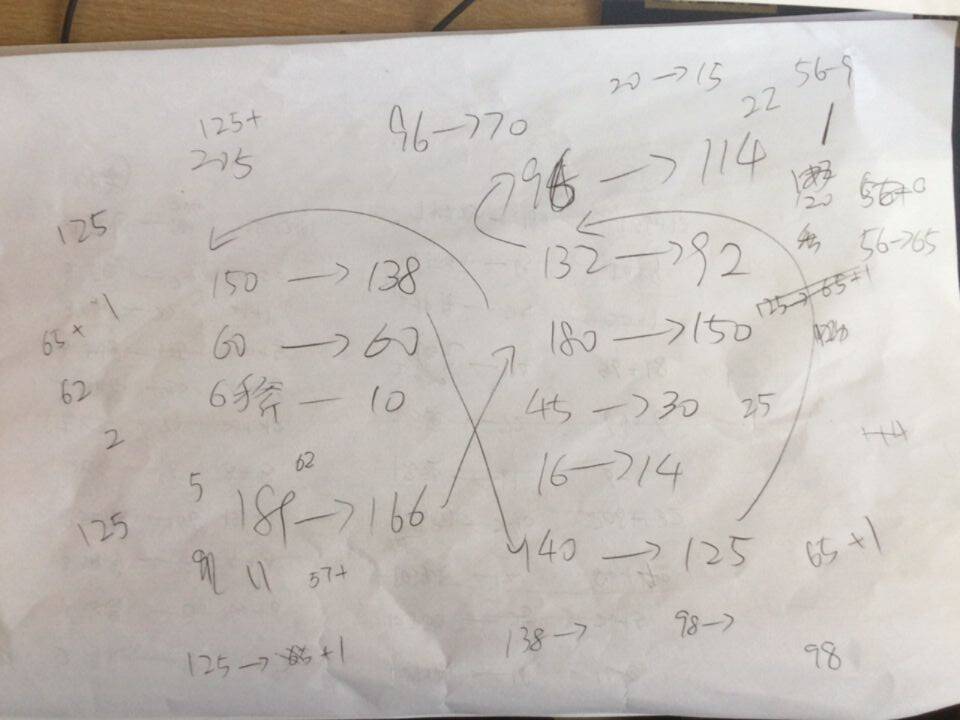 20 → 15
56-9
22
1
125+
96 → 70
215
→ 114
20
125
132 → 92
56 → 65
150 → 138
1
65+
180 → 150
125 → 65+1
60 → 60
62
10
45 → 30
25
2
16 → 14
62
5
166
125
140 → 125
65+1
11
57+
138 →
98 →
125 →
+1
98